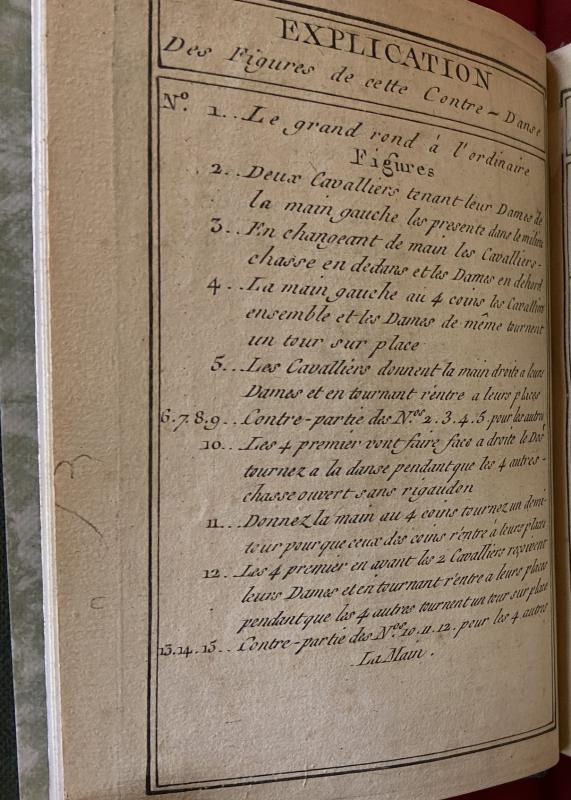 EXPLICATION
Des Figures de cette Contre-Danse
N.º 1.. Le grand rond à l'ordinaire
Figures
2.. Deux Cavalliers tenant leur Dames de
la main gauche les presente dans le milieu
3.. En changeant de main les Cavalliers-
chasse en dedans et les Dames en dehord
4.. La main gauche au 4 coins les Cavalliers
ensemble et les Dames de même tournent
un tour sur place
5... Les Cavalliers donnent la main droite a leurs
Dames et en tournant r'entre a leurs places
6.7.8.9.. Contre-partie des N.os 2.3.4.5. pour les autres
10... Les 4 premier vont faire face a droite le Dos
tournez a la danse pendant que les 4 autres-
chasse ouvert sans rigaudon
11... Donnez la main au 4 coins tournez un demi-
tour pour que ceux des coins r'entre à leurs places
12.. Les 4 premier en avant les 2 Cavalliers reçoivent
leurs Dames et en tournant r'entre à leurs places
pendant que les 4 autres tournent un tour sur place
13.14.15.. Contre-partie des N.os 10.11.12. pour les 4 autres
La Main.